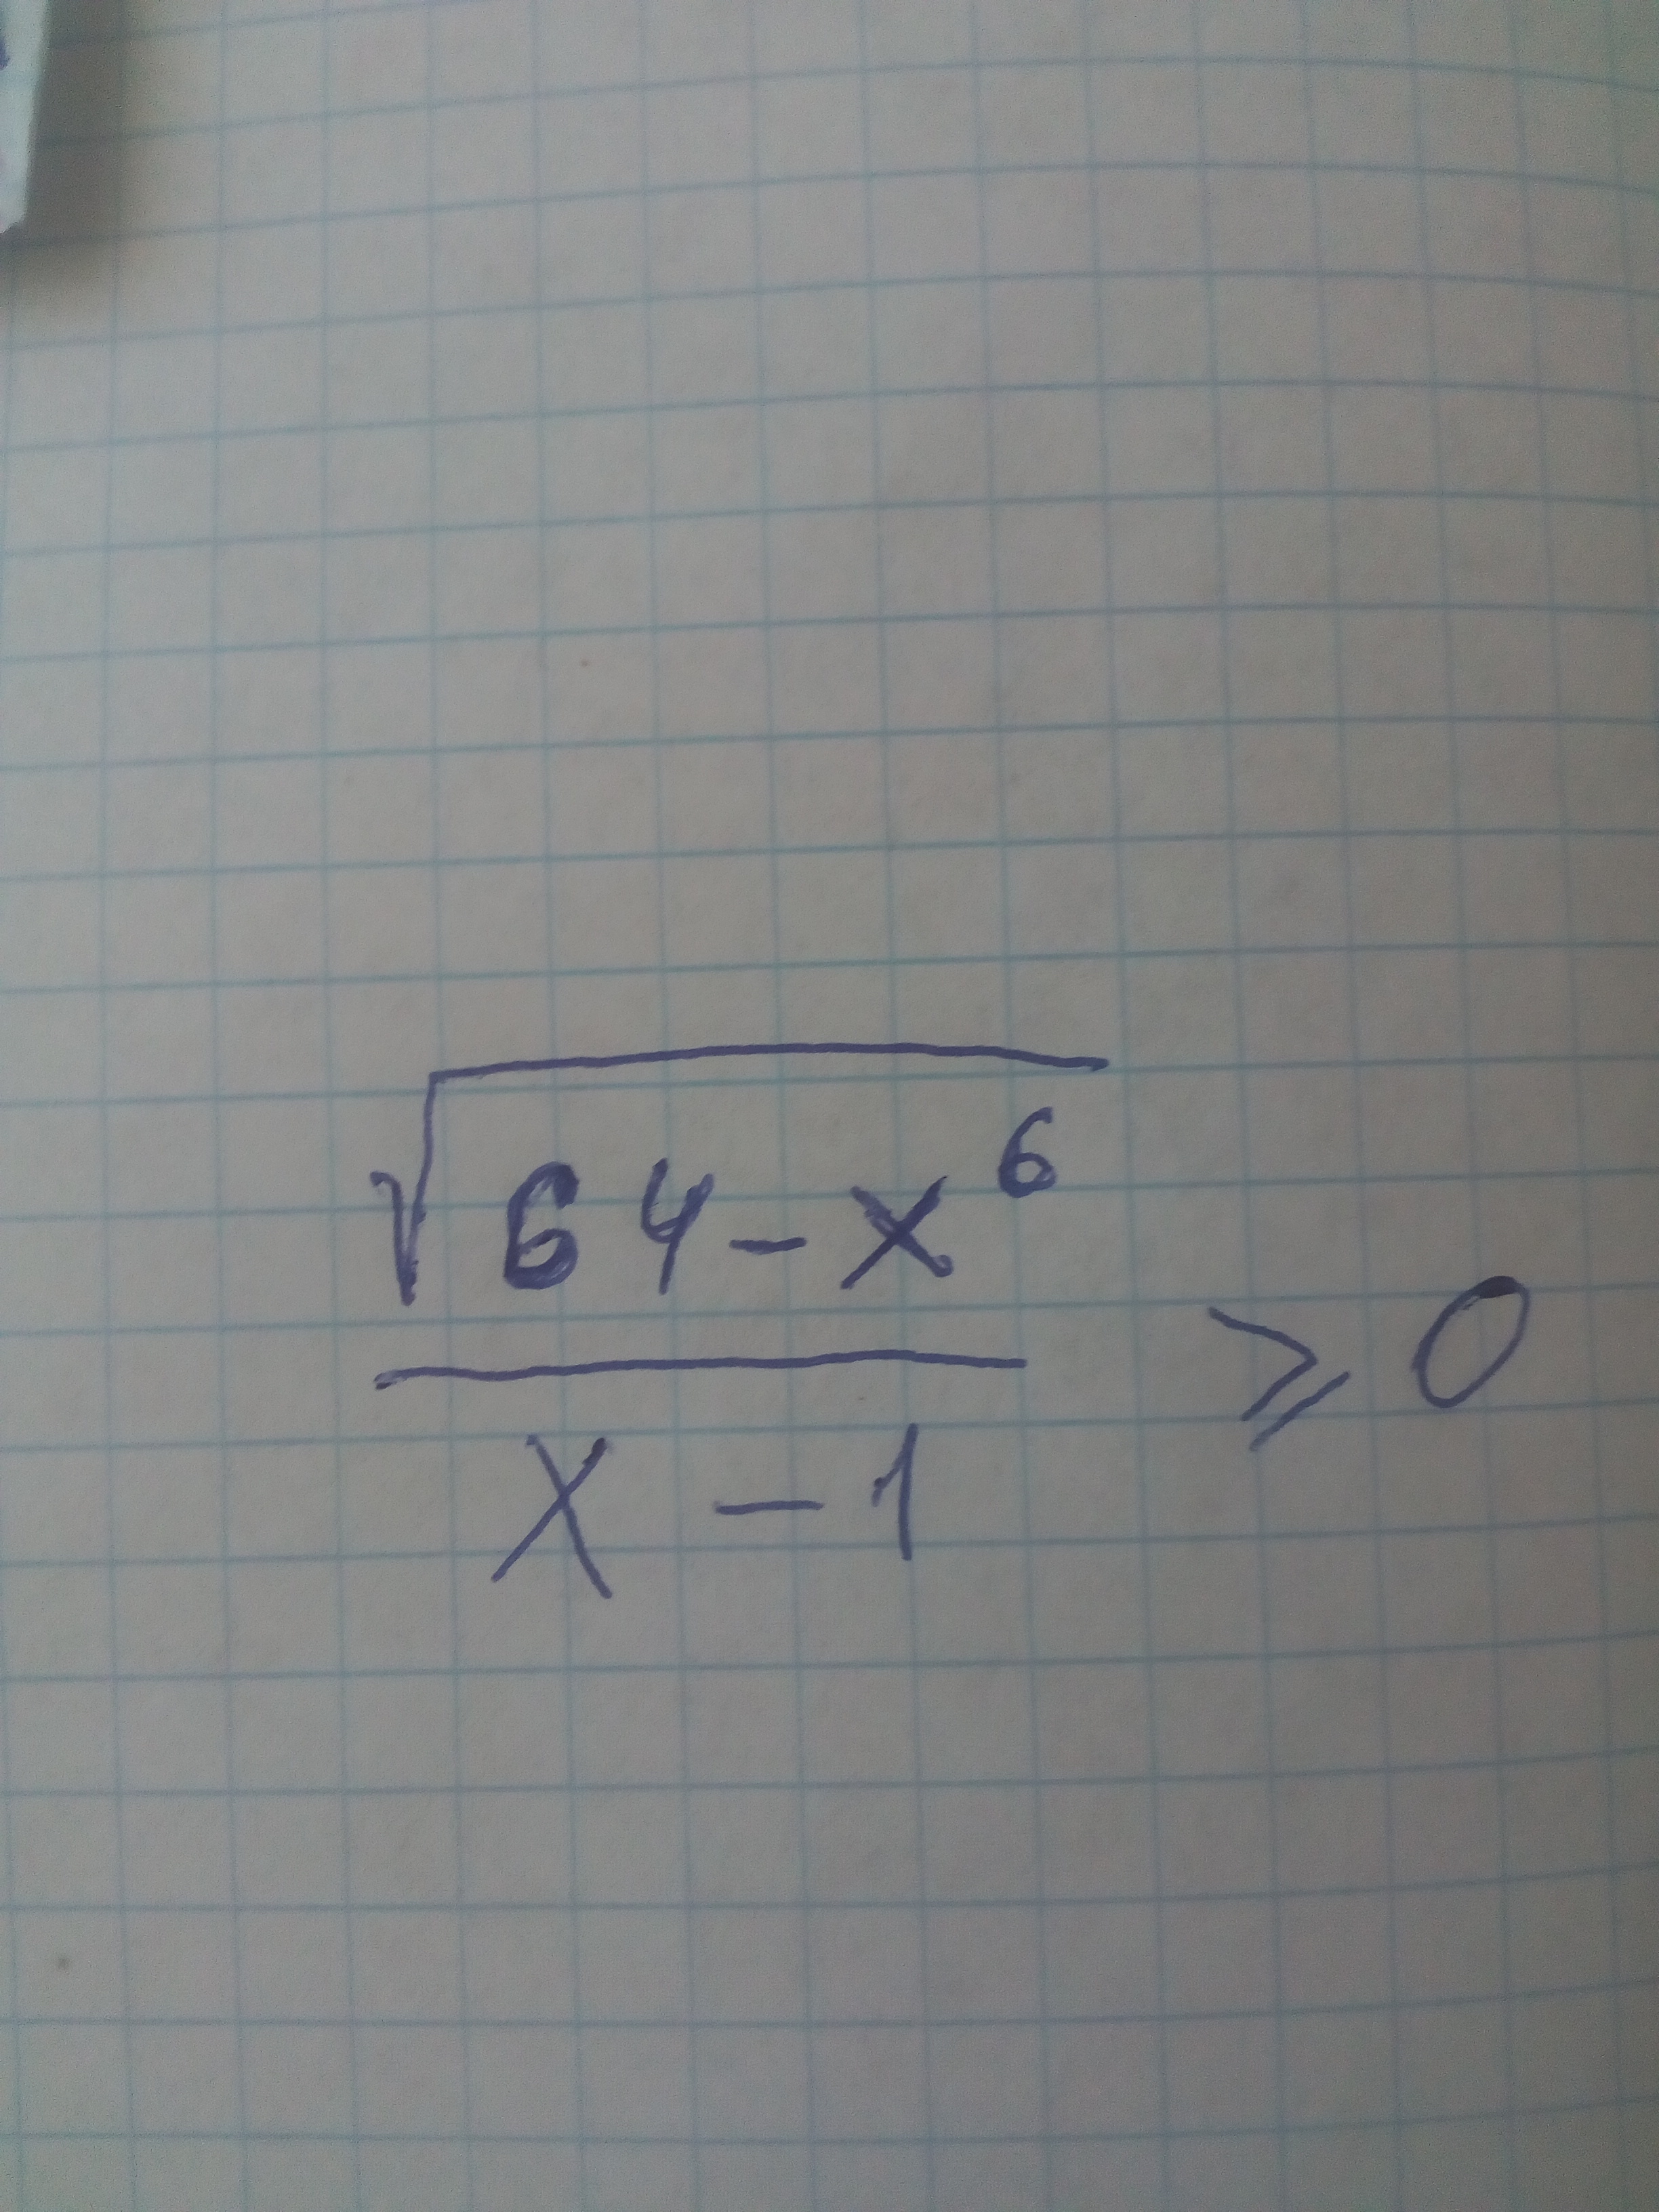 √(64-x⁶)/(x-1) ⩾ 0